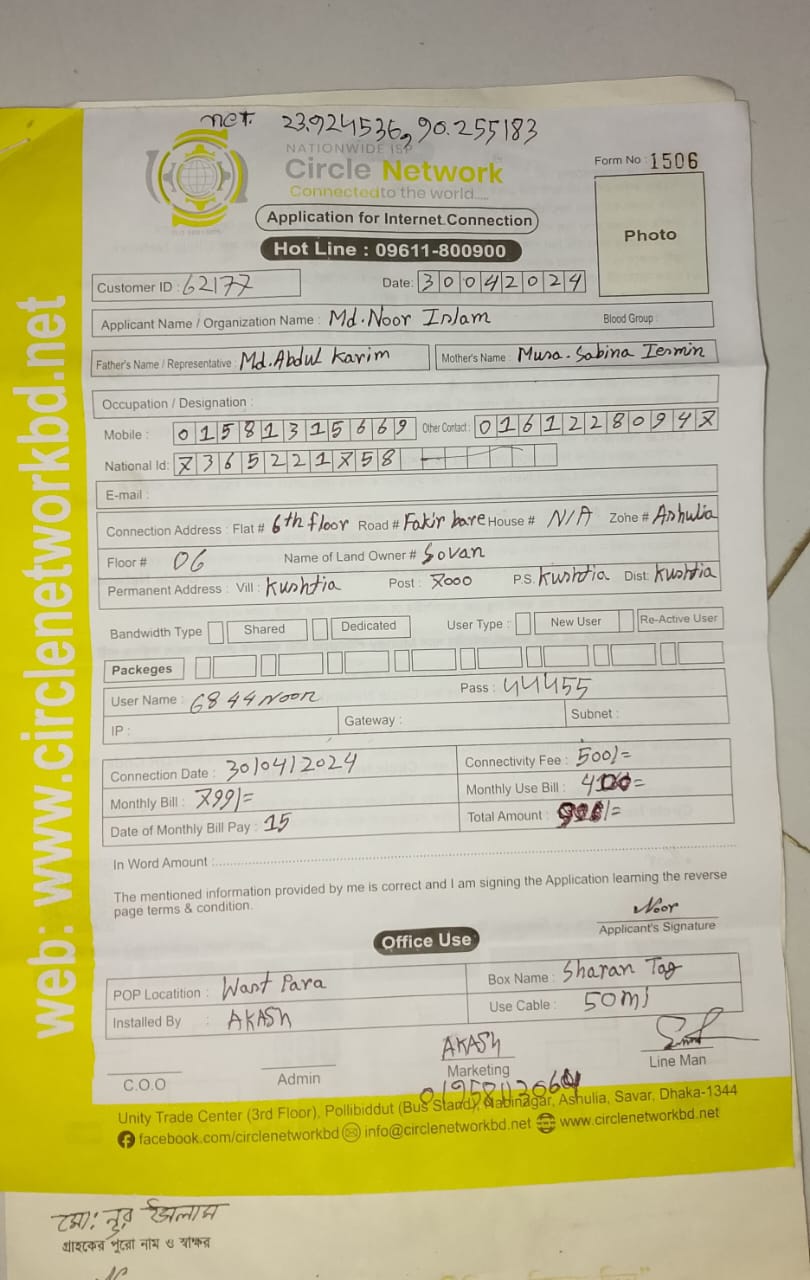 net. 23.924536, 90.255183
NATIONWIDE ISP
Circle Network
Connected to the world.....
Form No : 1506
Application for Internet Connection
Photo
Hot Line : 09611-800900
Customer ID : 62177 Date: 30042024
Applicant Name / Organization Name : Md. Noor Islam Blood Group :
Father's Name / Representative : Md. Abdul Karim Mother's Name : Musa. Sabina Iesmin
Occupation / Designation :
Mobile : 01581315669 Other Contact : 01612280947
National Id: 7365221758
E-mail :
Connection Address : Flat # 6th floor Road # Fakir bare House # N/A Zohe # Ashulia
Floor # 06 Name of Land Owner # Sovan
Permanent Address : Vill : Kushtia Post : 7000 P.S. Kushtia Dist: Kushtia
Bandwidth Type Shared Dedicated User Type : New User Re-Active User
Packeges
User Name : 6844Noor Pass : 44455
IP : Gateway : Subnet :
Connection Date : 30/04/2024 Connectivity Fee : 500/=
Monthly Bill : 799/= Monthly Use Bill :
Date of Monthly Bill Pay : 15 Total Amount :
In Word Amount :
The mentioned information provided by me is correct and I am signing the Application learning the reverse
page terms & condition.
Noor
Applicant's Signature
Office Use
POP Locatition : Want Para Box Name : Sharan Tag
Installed By : AKASH Use Cable : 50mi
AKASH
C.O.O Admin Marketing Line Man
Unity Trade Center (3rd Floor), Pollibiddut (Bus Stand), Nabinagar, Ashulia, Savar, Dhaka-1344
facebook.com/circlenetworkbd info@circlenetworkbd.net www.circlenetworkbd.net
web: www.circlenetworkbd.net
মো: নুর ইসলাম
গ্রাহকের পুরো নাম ও স্বাক্ষর